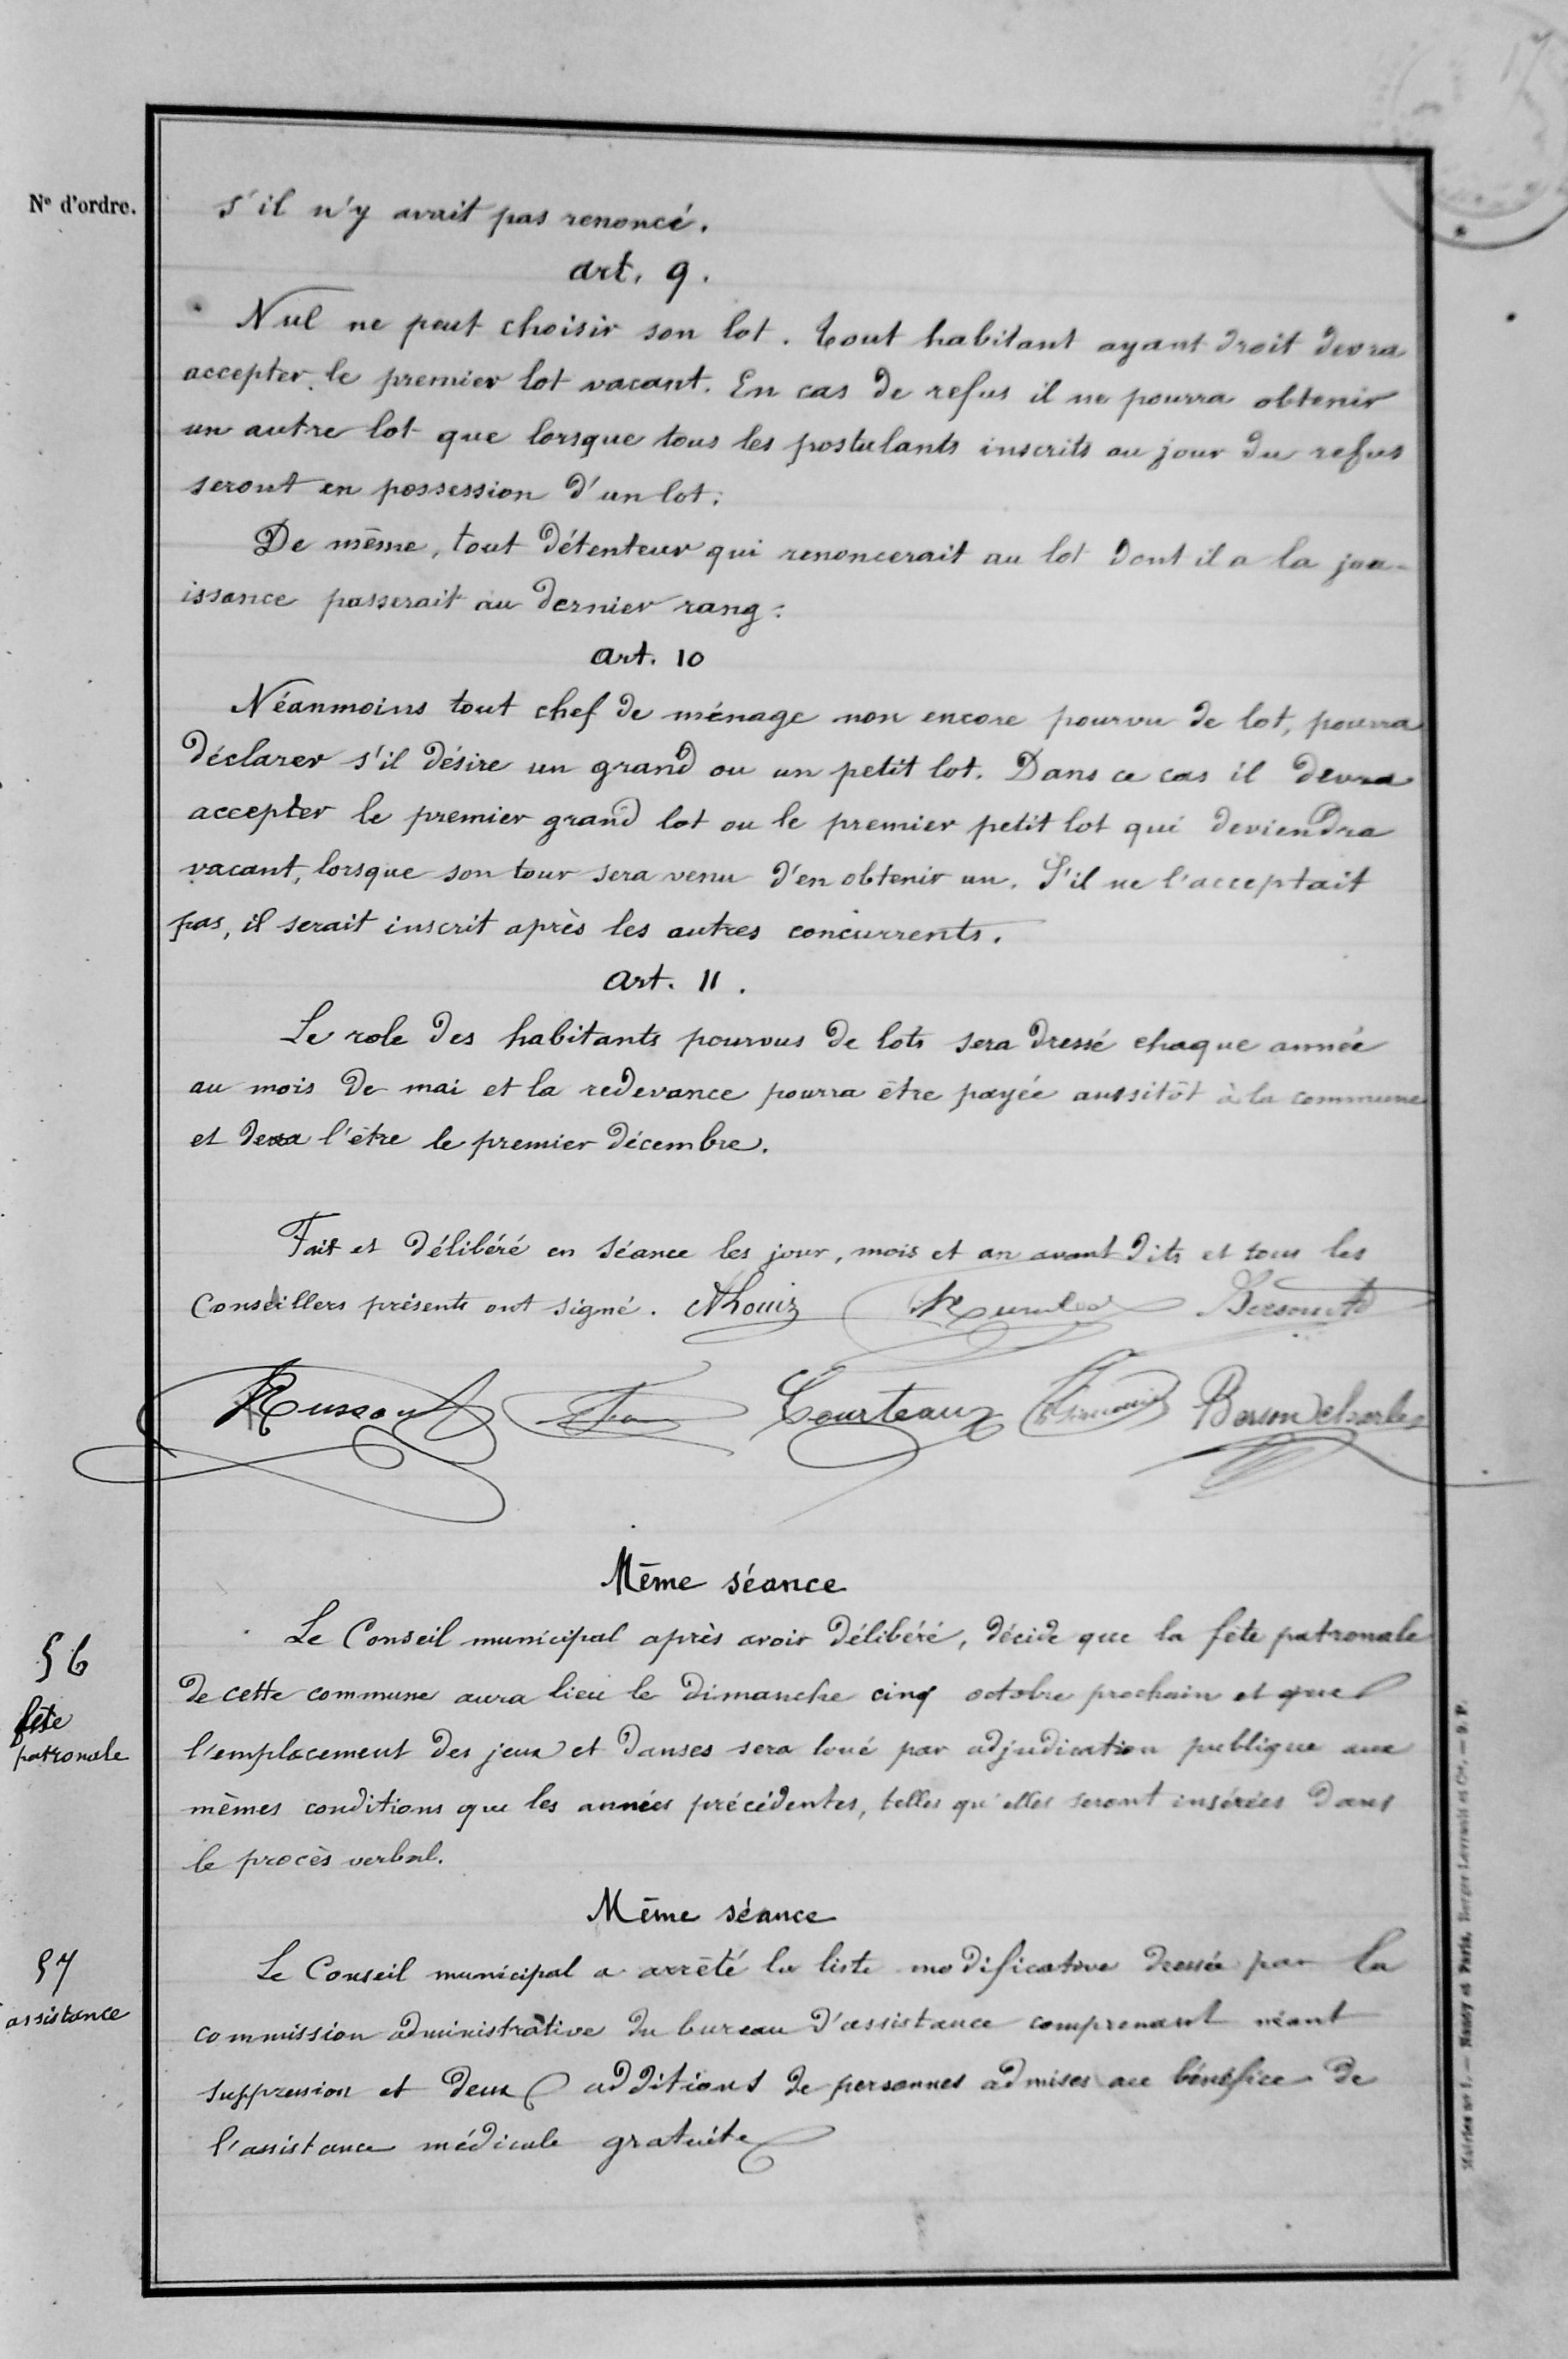 17
N° d'ordre.
s'il n'y avait pas renoncé.
art. 9.
Nul ne peut choisir son lot. tout habitant ayant droit devra
accepter le premier lot vacant. En cas de refus il ne pourra obtenir
un autre lot que lorsque tous les postulants inscrits au jour du refus
seront en possession d'un lot.
De même, tout détenteur qui renoncerait au lot dont il a la jou-
issance passerait au dernier rang.
art. 10
Néanmoins tout chef de ménage non encore pourvu de lot, pourra
déclarer s'il désire un grand ou un petit lot. Dans ce cas il devra
accepter le premier grand lot ou le premier petit lot qui deviendra
vacant, lorsque son tour sera venu d'en obtenir un. S'il ne l'acceptait
pas, il serait inscrit après les autres concurrents.
art. 11.
Le role des habitants pourvus de lots sera dressé chaque année
au mois de mai et la redevance pourra être payée aussitôt à la commune
et devra l'être le premier décembre.
Fait et délibéré en séance les jour, mois et an avant dits et tous les
Conseillers présents ont signé.
Courteaux Charles
Même séance
56
fête
patronale
Le Conseil municipal après avoir délibéré, décide que la fête patronale
de cette commune aura lieu le dimanche cinq octobre prochain et que
l'emplacement des jeux et danses sera loué par adjudication publique aux
mêmes conditions que les années précédentes, telles qu'elles seront insérées dans
le procès verbal.
Même séance
57
assistance
Le Conseil municipal a arrêté la liste modificative dressée par la
commission administrative du bureau d'assistance comprenant néant
suppression et deux additions de personnes admises au bénéfice de
l'assistance médicale gratuite
Nancy et Paris, Berger-Levrault et Cie.